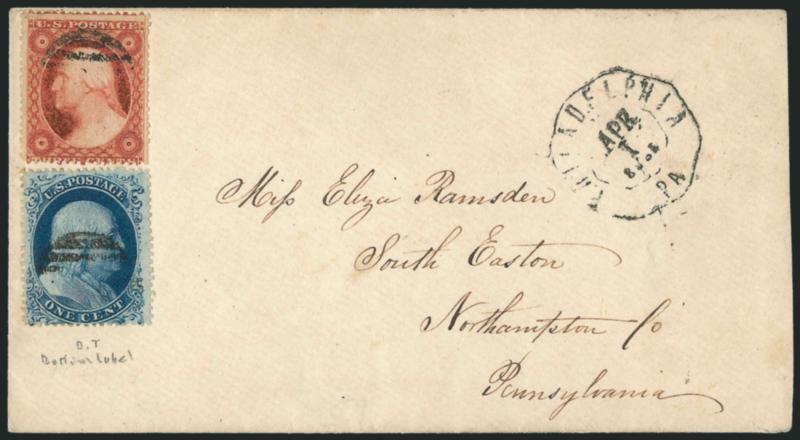 U.S. POSTAGE
U.S. POSTAGE
ONE CENT
PHILADELPHIA
APR
1
PA
Miss Eliza Ramsden
South Easton
Northampton Co
Pennsylvania